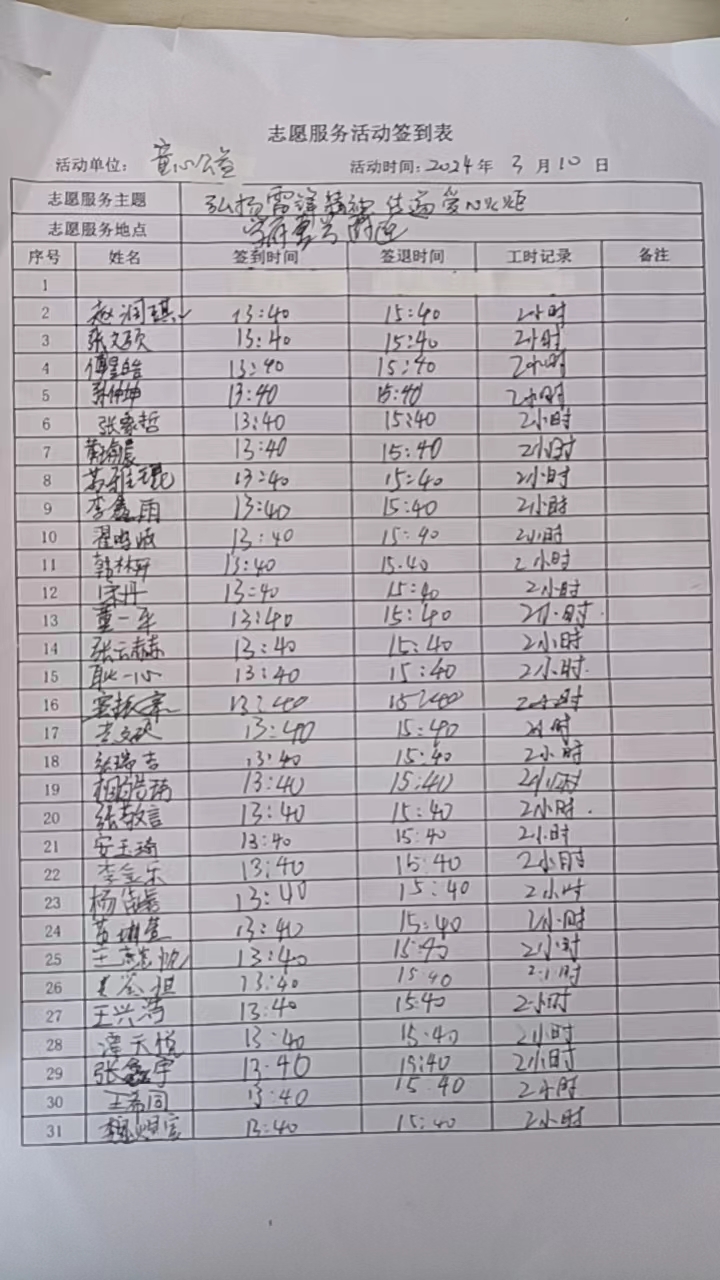 志愿服务活动签到表
活动单位: 童心公益 活动时间: 2024 年 3 月 10 日
志愿服务主题 弘扬雷锋精神 传递爱心火炬
志愿服务地点 学府 附近
序号 姓名 签到时间 签退时间 工时记录 备注
1
2 赵润琪 13:40 15:40 2小时
3 张文硕 13:40 15:40 2小时
4 傅皇皓 13:40 15:40 2小时
5 13:40 15:40 2小时
6 张家哲 13:40 15:40 2小时
7 13:40 15:40 2小时
8 13:40 15:40 2小时
9 李鑫雨 13:40 15:40 2小时
10 13:40 15:40 2小时
11 韩林轩 13:40 15.40 2小时
12 宋丹 13:40 15:40 2小时
13 董一平 13:40 15:40 2小时.
14 张云赫 13:40 15:40 2小时
15 耿一心 13:40 15:40 2小时.
16 13:40 15:40 2小时
17 13:40 15:40 2小时
18 张瑞吉 13:40 15:40 2小时
19 相浩瑀 13:40 15:40 2小时
20 张敬言 13:40 15:40 2小时.
21 安玉琦 13:40 15:40 2小时
22 李金乐 13:40 15:40 2小时
23 13:40 15:40 2小时
24 13:40 15:40 2小时
25 13:40 15:40 2小时
26 13:40 15:40 2小时
27 王兴满 13:40 15:40 2小时
28 谭天悦 13:40 15:40 2小时
29 张鑫宇 13:40 15:40 2小时
30 王希同 13:40 15:40 2小时
31 13:40 15:40 2小时